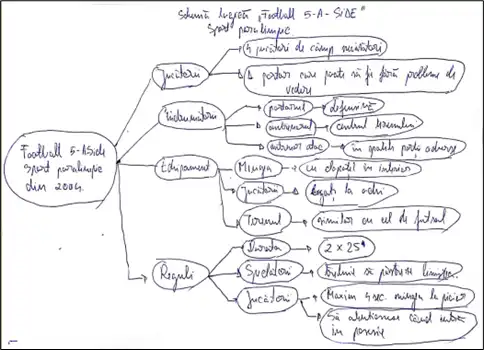 Schemă logică „Football 5-A-SIDE"
Sport paralimpic
Jucători
4 jucători de câmp nevăzători
1 portar care poate să fie fără probleme de
vedere
Îndrumători
portarul
defensivă
antrenorul
centrul terenului
în spatele porții adverse
Football 5-ASide
Sport paralimpic
din 2004.
Echipament
Mingea
cu clopoței în interior
Jucătorii
legați la ochi
Terenul
similar cu cel de futsal
Reguli
Durata
2 x 25'
Spectatorii
Trebuie să păstreze liniștea
Jucătorii
Maxim 4 sec. mingea la picior
Să atenționeze când intră
în posesie